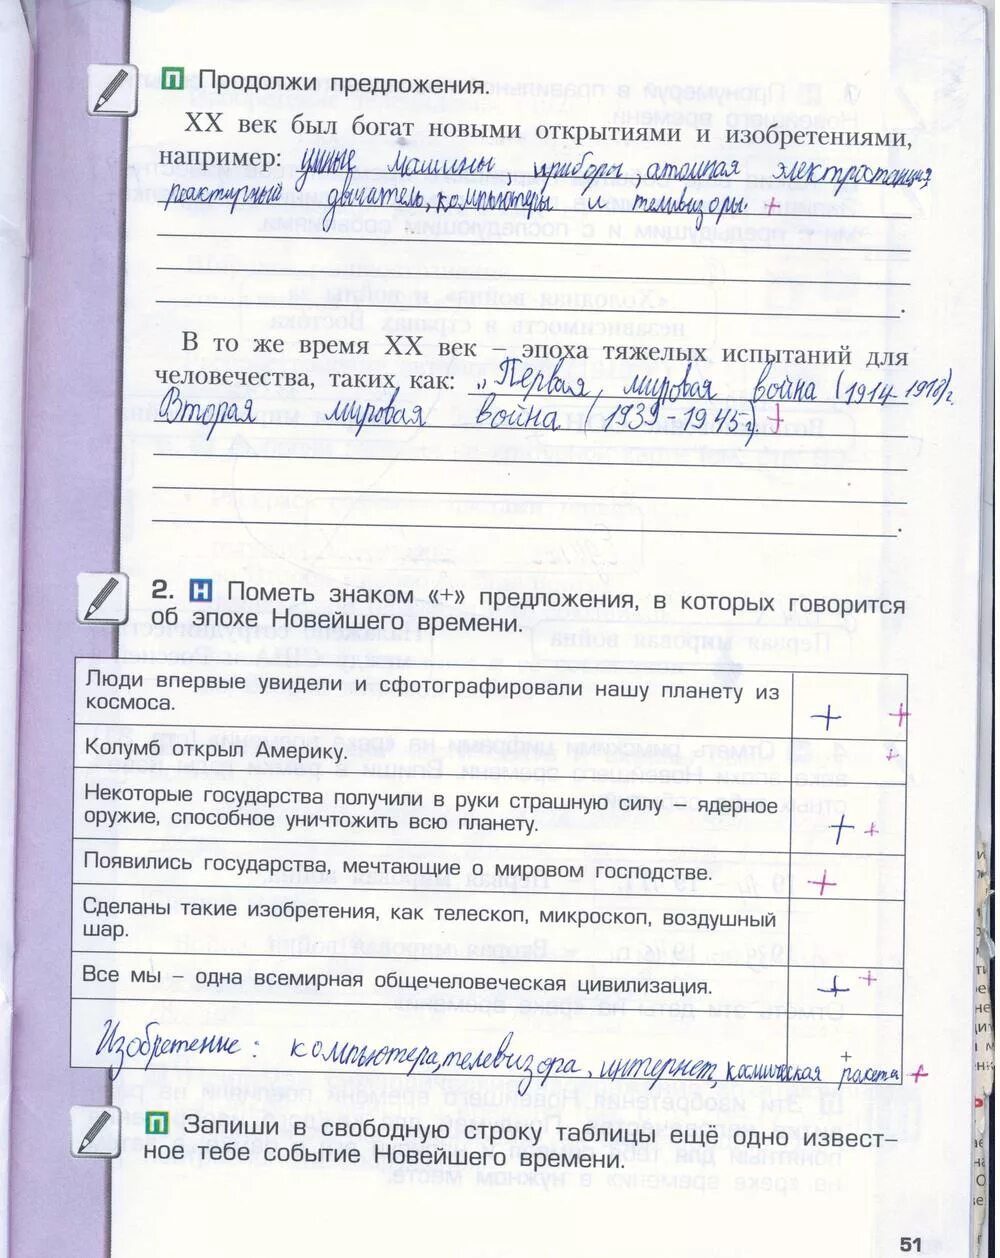 П Продолжи предложения.
XX век был богат новыми открытиями и изобретениями,
например: умные машины, приборы, атомная электростанция,
реактивный двигатель, компьютеры и телевизоры. +
.
В то же время XX век – эпоха тяжелых испытаний для
человечества, таких как: „Первая, мировая война (1914-1918)г.
Вторая мировая война (1939-1945г) +
.
2. Н Пометь знаком «+» предложения, в которых говорится
об эпохе Новейшего времени.
Люди впервые увидели и сфотографировали нашу планету из
космоса. + +
Колумб открыл Америку. +
Некоторые государства получили в руки страшную силу – ядерное
оружие, способное уничтожить всю планету. + +
Появились государства, мечтающие о мировом господстве. +
Сделаны такие изобретения, как телескоп, микроскоп, воздушный
шар.
Все мы – одна всемирная общечеловеческая цивилизация. + +
Изобретение: компьютера, телевизора, интернет, космическая ракета + +
П Запиши в свободную строку таблицы ещё одно извест-
ное тебе событие Новейшего времени.
51